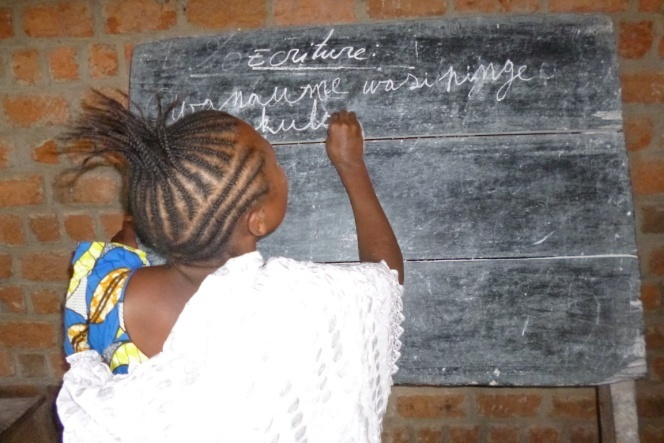 Ecriture:
wanaume wasipinge
kub